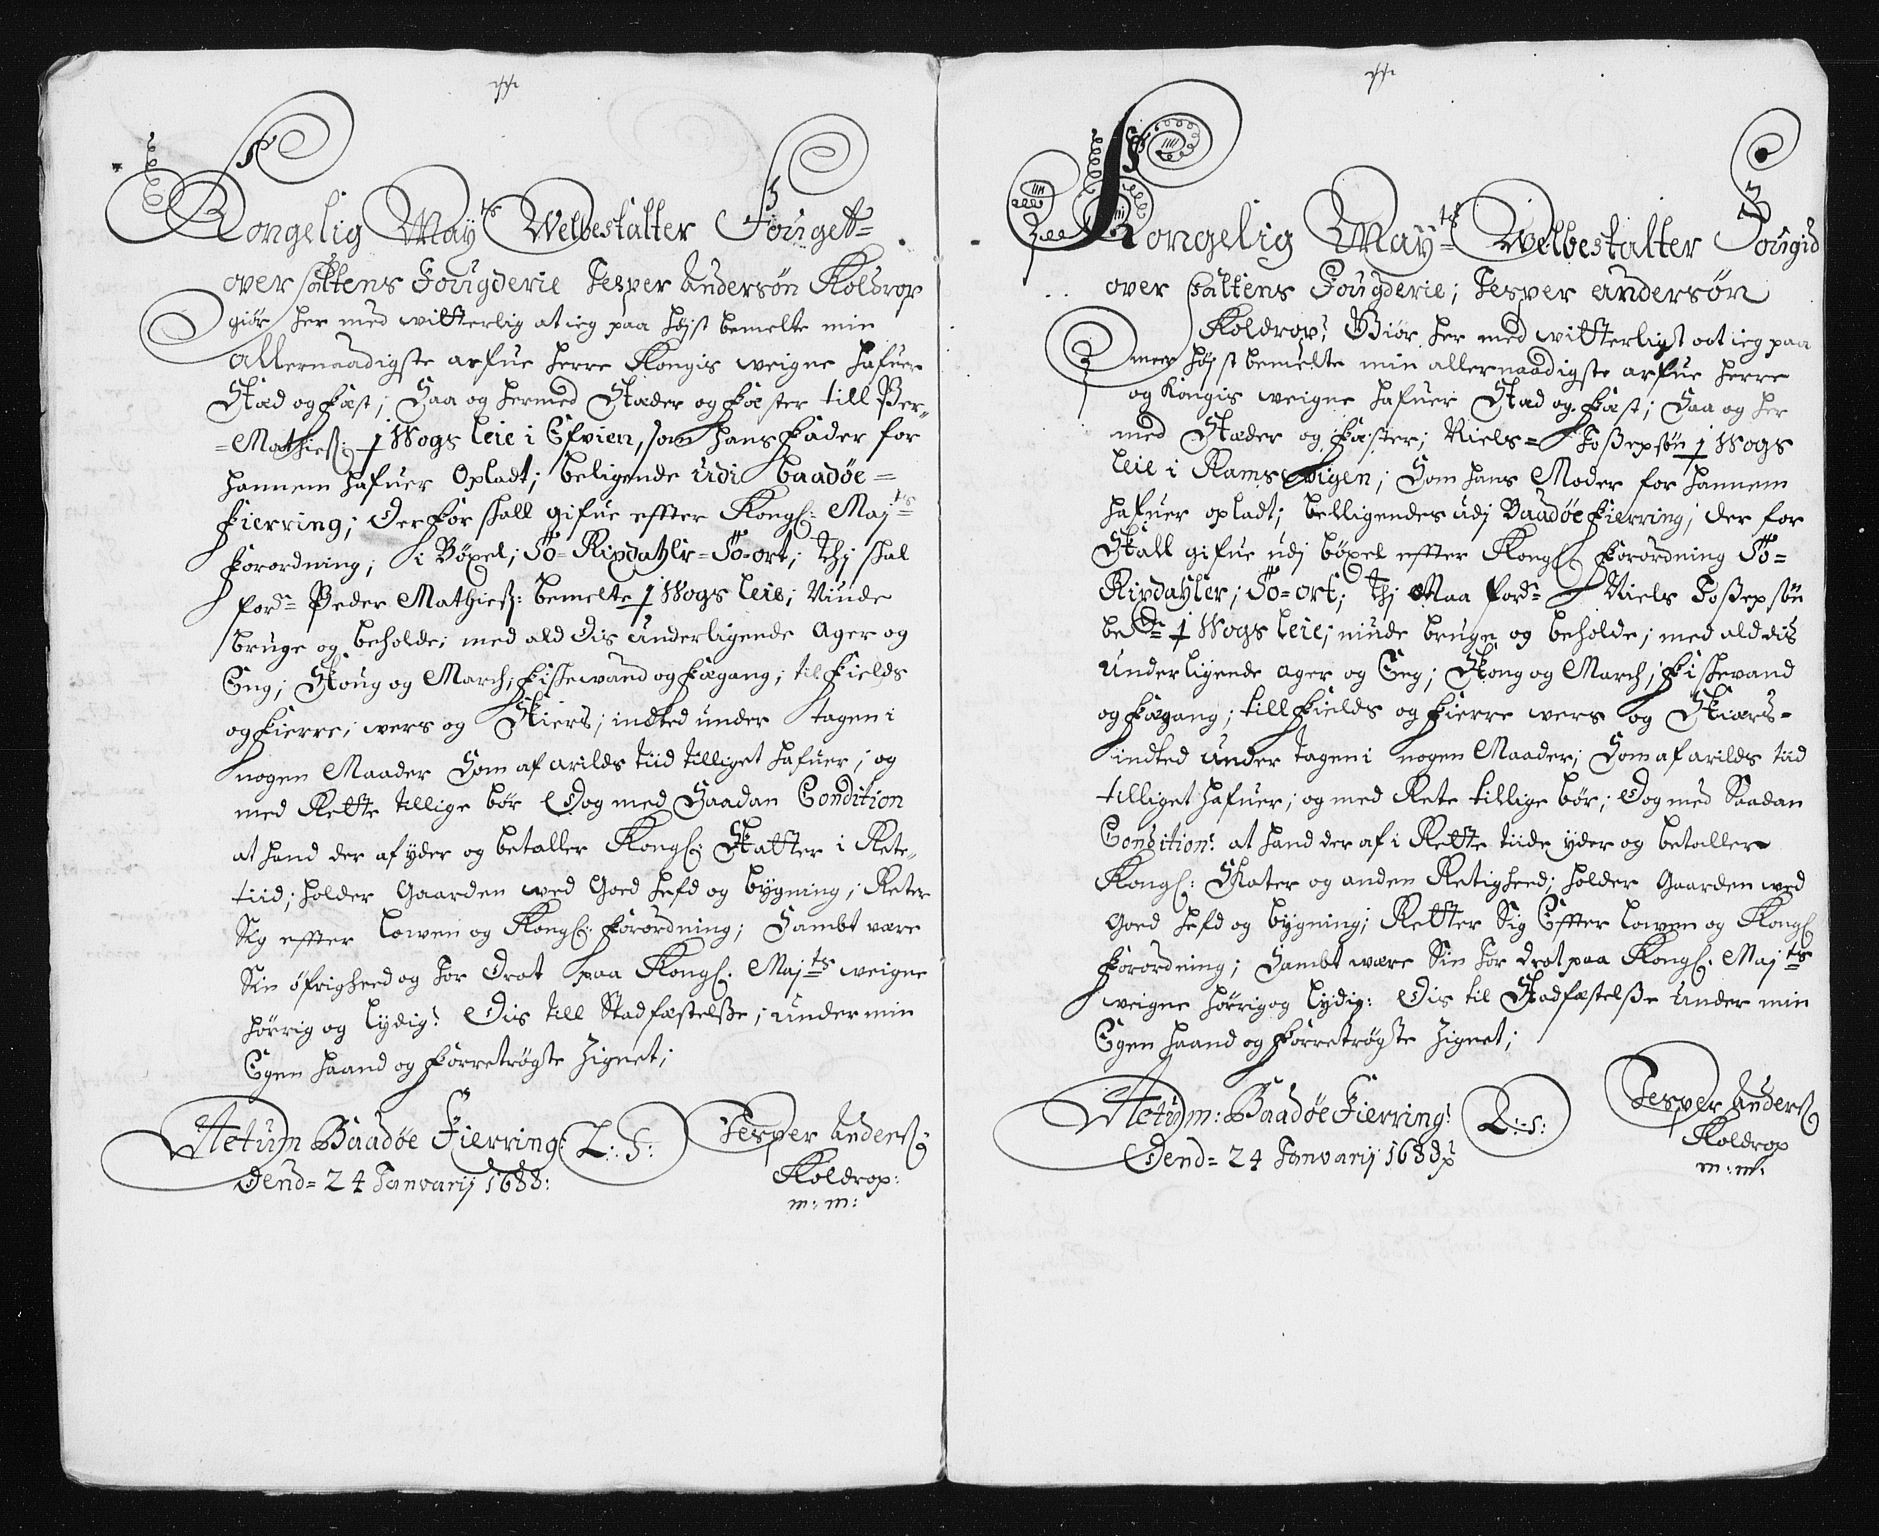 Kongelig May:ts Welbestalter Fouget=
over saltens Fougderie Jesper Andersøn Koldrop
giør her med witterlig at ieg paa høist bemelte min
allernaadigste arfue herre Kongis weigne hafuer
Stæd og fæst; Saa og hermed Stæder og fæster till Per=
=Mathieß: 1 Wogs leie i Efvien, som hans fader for
hannem hafuer Opladt; beligende udi baadøe=
fierring; Derfor skall gifue effter Kongl: Maj:ts
forordning; i Böxel; Tö= Rixdahlr= Tö=ort; Thj skal
ford= Peder Mathieß: bemelte 1 Wogs leie; Niude
bruge og beholde; med ald dis underligende Ager og
Eng; Skoug og March; fiskewand og fægang; til fields
og fierre; wers og Skiers; indted under tagen i
nogen Maader Som af arilds tiid tilliget hafuer; og
med Rette tillige bør Dog med Saadan Condition
at hand der af yder og betaller Kongl: Skatter i Rete=
tiid; holder Gaarden wed Goed hefd og bygning; Reter
Sig effter lowen og Kongl: forordning; Sambt være
Sin öfrighed og for Drot paa Kongl: Maj:ts weigne
hörrig og lydig: Dis till Stadfæstelße; under min
Egen haand og forretrögte Zignet;
Actum Baadøe Fierring: L: S: Jesper Anders:
Dend= 24 Januarij 1688: Koldrop:
m: m:
Kongelig May:ts Welbestalter Fougid
over Saltens Fougderie; Jesper Andersøn
Koldrop: Giør her med witterligt at ieg paa
meer høist bemelte min allernaadigste arfue herre
og Kongis weigne hafuer Stæd og fæst; Saa og her
med Stæder og fæster; Niels= Joßepsøn 1 Wogs
leie i Ramswigen; Som hans Moder for hannem
hafuer opladt; belligendes udj Baadøe fierring; der for
Skall gifue udj böxel effter Kongl: forordning Tö=
Rixdahler; Tö=ort; Thj Maa ford= Niels Joßepsøn
be:te 1 Wogs leie; niude bruge og beholde; med ald dis
underligende ager og Eng; Skong og March; fiskevand
og fægang; till fields og fierre wers og Skiærs=
indted under tagen i nogen Maader; Som af arilds tiid
tilliget hafuer; og med Rete tillige bør; Dog med Saadan
Condition: at hand der af i Rette tiide yder og betaller
Kongl: Skater og anden Retighed; holder Gaarden wed
Goed hefd og bygning; Retter Sig Effter lowen og Kongl:
forordning; Sambt wære Sin for drot paa Kongl: Maj:ts
weigne hörrig og lydig: Dis til Stadfæstelße under min
Egen haand og forretrögte Zignet;
Actum: Baadøe Fierring: L: S: Jesper Anders:
Dend= 24 Januarij 1688 Koldrop
m: m: